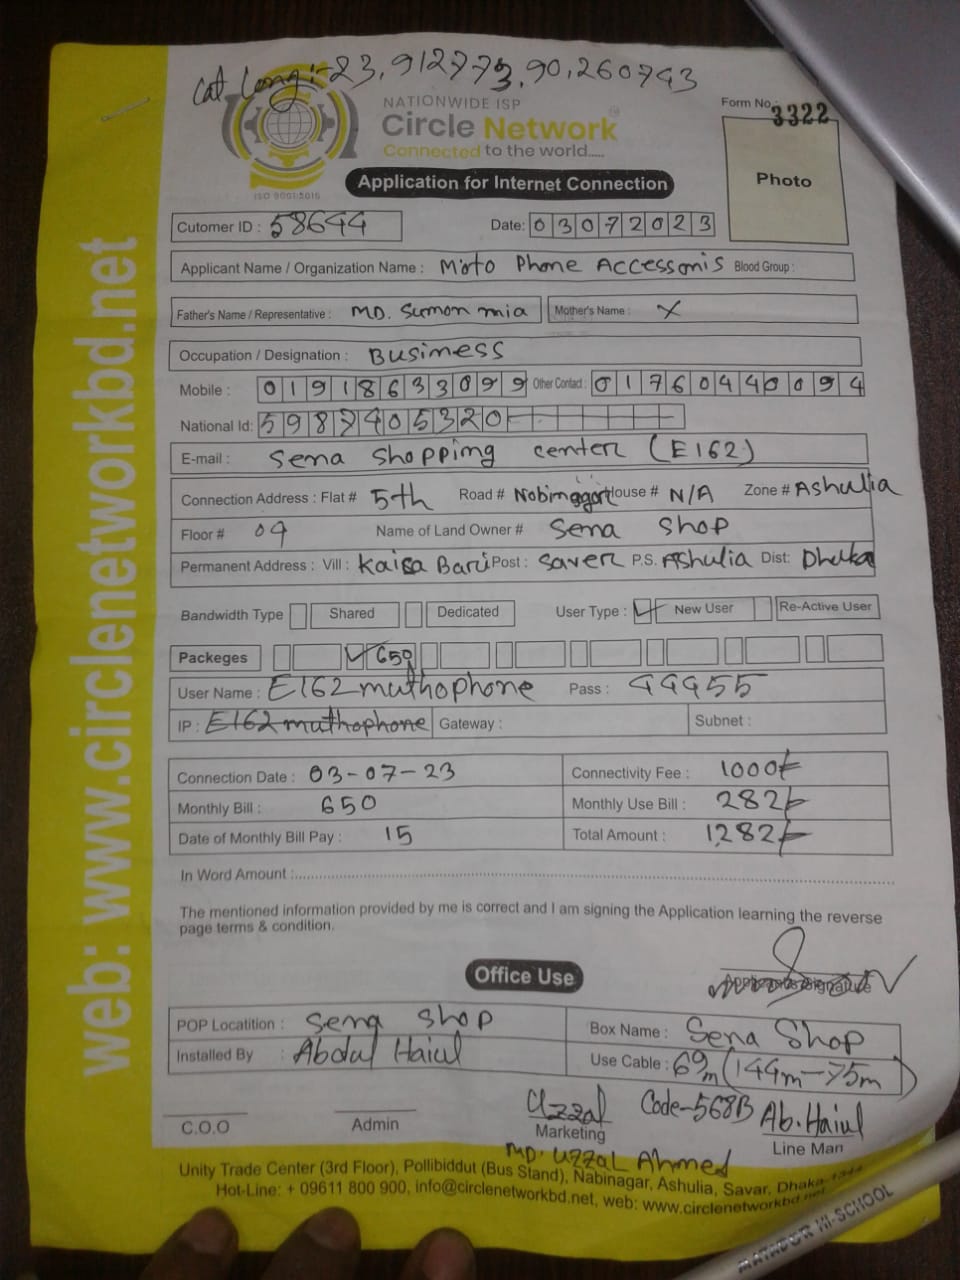 Cat Long:-23,912773,90,260743
NATIONWIDE ISP
Circle Network
Connected to the world.....
ISO 9001:2015
Form No.: 3322
Photo
Application for Internet Connection
Cutomer ID : 58644
Date: 03072023
Applicant Name / Organization Name : Moto Phone Accessonis Blood Group :
Father's Name / Representative : MD. Sumon mia Mother's Name : X
Occupation / Designation : Business
Mobile : 01918633099 Other Contact : 01760440094
National Id: 5987405320
E-mail : Sena Shopping center (E162)
Connection Address : Flat # 5th Road # House # N/A Zone # Ashulia
Floor # 04 Name of Land Owner # Sena Shop
Permanent Address : Vill : Kaisa Bari Post : Saver P.S. Ashulia Dist: Dhaka
Bandwidth Type Shared Dedicated User Type : ✓ New User Re-Active User
Packeges ✓ 650
User Name : E162muthophone Pass : 44455
IP : E162muthophone Gateway : Subnet :
Connection Date : 03-07-23 Connectivity Fee : 1000/-
Monthly Bill : 650 Monthly Use Bill : 282/-
Date of Monthly Bill Pay : 15 Total Amount : 1282/-
In Word Amount :
The mentioned information provided by me is correct and I am signing the Application learning the reverse
page terms & condition.
Office Use
POP Locatition : Sena Shop Box Name : Sena Shop
Installed By : Abdul Haiul Use Cable : 69m (144m-75m)
Uzzal Code-568B Ab.Haiul
C.O.O Admin Marketing Line Man
MD. UZZAL Ahmed
Unity Trade Center (3rd Floor), Pollibiddut (Bus Stand), Nabinagar, Ashulia, Savar, Dhaka-1344
Hot-Line: + 09611 800 900, info@circlenetworkbd.net, web: www.circlenetworkbd.net
web: www.circlenetworkbd.net
MATADOR HI-SCHOOL